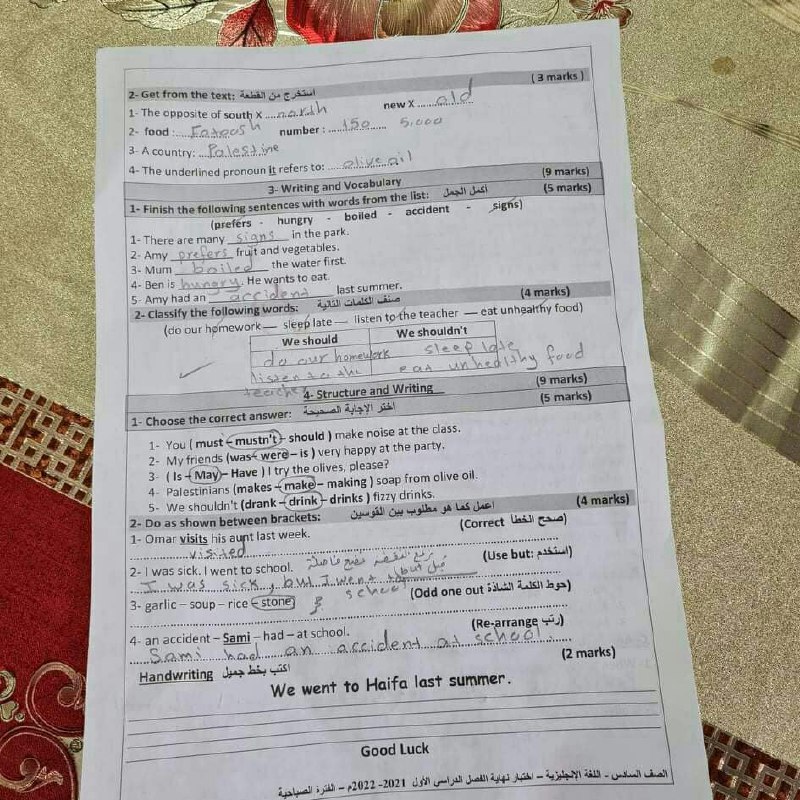 ( 3 marks )
2- Get from the text: استخرج من القطعة
1- The opposite of south X ....north new X .....old
2- food :...Fatoosh number : ...150...... 5,000
3- A country:...Palestine
4- The underlined pronoun it refers to: ...olive oil
3- Writing and Vocabulary (9 marks)
1- Finish the following sentences with words from the list: أكمل الجمل (5 marks)
(prefers - hungry - boiled - accident - signs)
1- There are many signs in the park.
2- Amy prefers fruit and vegetables.
3- Mum boiled the water first.
4- Ben is hungry. He wants to eat.
5- Amy had an accident last summer.
2- Classify the following words: صنف الكلمات التالية (4 marks)
(do our homework — sleep late — listen to the teacher — eat unhealthy food)
We should We shouldn't
do our homework sleep late
listen to the eat unhealthy food
teacher
4- Structure and Writing (9 marks)
1- Choose the correct answer: اختر الإجابة الصحيحة (5 marks)
1- You ( must – mustn't – should ) make noise at the class.
2- My friends (was – were – is ) very happy at the party.
3- ( Is – May – Have ) I try the olives, please?
4- Palestinians (makes – make – making ) soap from olive oil.
5- We shouldn't (drank – drink – drinks ) fizzy drinks.
2- Do as shown between brackets: اعمل كما هو مطلوب بين القوسين (4 marks)
1- Omar visits his aunt last week. (Correct صحح الخطأ)
visited
2- I was sick. I went to school. (Use but: استخدم)
I was sick, but I went to
school
3- garlic – soup – rice – stone (Odd one out حوط الكلمة الشاذة)
4- an accident – Sami – had – at school. (Re-arrange رتب)
Sami had an accident at school.
Handwriting اكتب بخط جميل (2 marks)
We went to Haifa last summer.
Good Luck
الصف السادس – اللغة الإنجليزية – اختبار نهاية الفصل الدراسي الأول 2021- 2022م – الفترة الصباحية